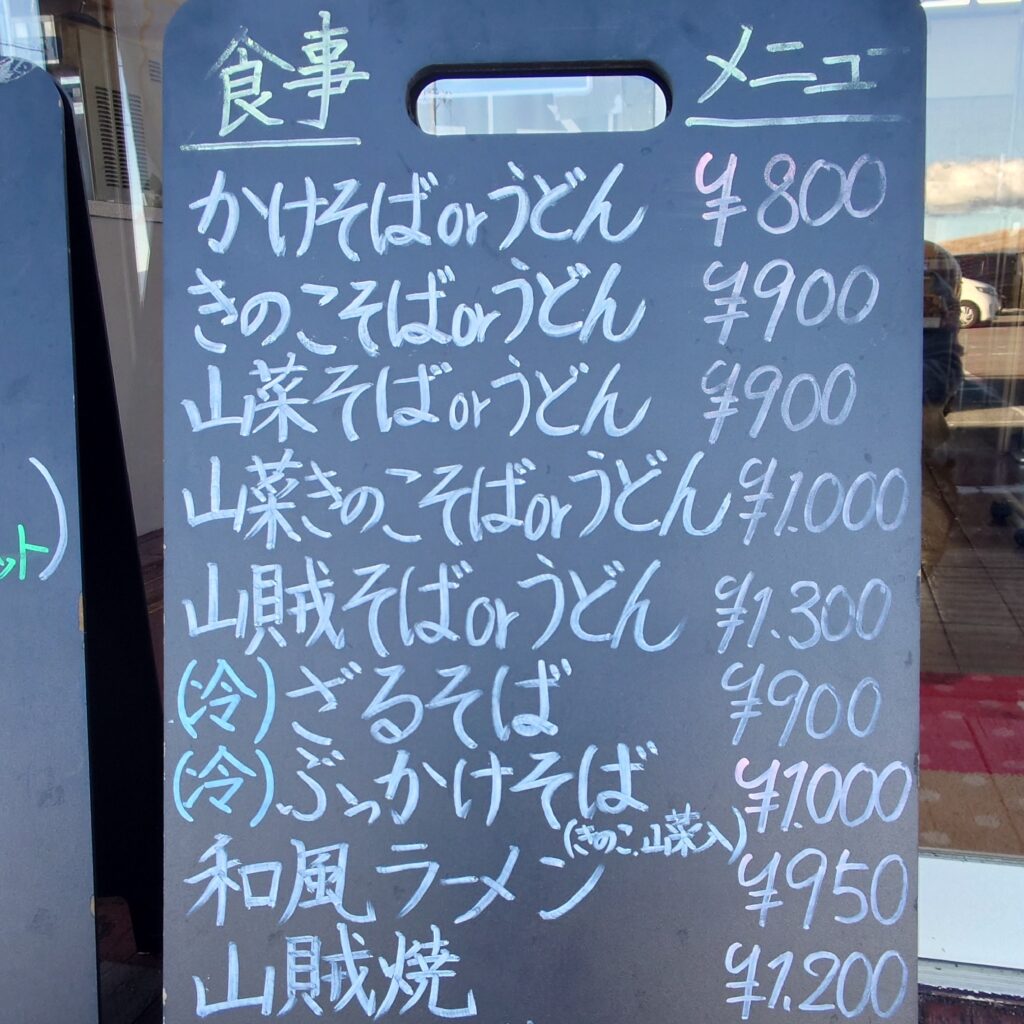 食事 メニュー
かけそばorうどん ¥800
きのこそばorうどん ¥900
山菜そばorうどん ¥900
山菜きのこそばorうどん ¥1.000
山賊そばorうどん ¥1.300
(冷)ざるそば ¥900
(冷)ぶっかけそば ¥1.000
(きのこ、山菜入)
和風ラーメン ¥950
山賊焼 ¥1.200
ット)